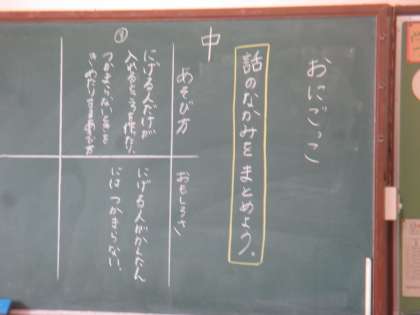 おにごっこ
話のなかみをまとめよう。
中
あそび方
おもしろさ
③
にげる人だけが
入れるところを作ったり、
つかまらないときを
きめたりするあそび方
にげる人がかんたん
には つかまらない。